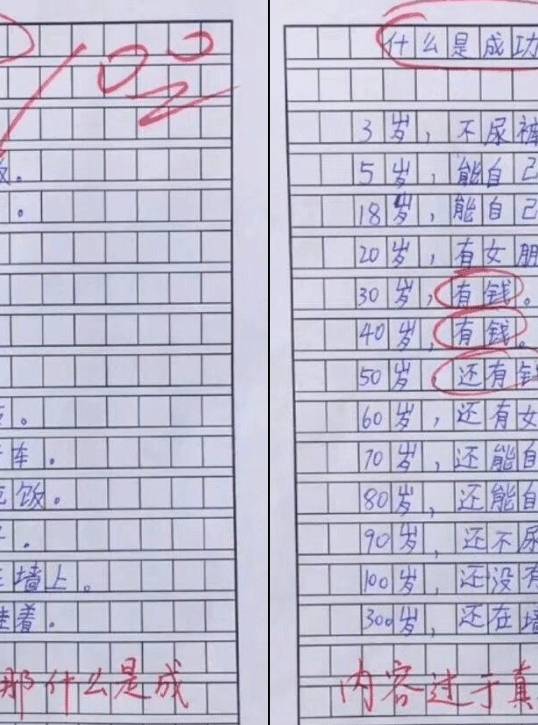 车。
饭。
墙上。
着。
那什么是成
什么是成功
3岁，不尿裤
5岁，能自己
18岁，能自己
20岁，有女朋
30岁，有钱。
40岁，有钱。
50岁 还有钱
60岁，还有女
70岁，还能自
80岁，还能自
90岁，还不尿
100岁，还没有
300岁，还在墙
内容过于真